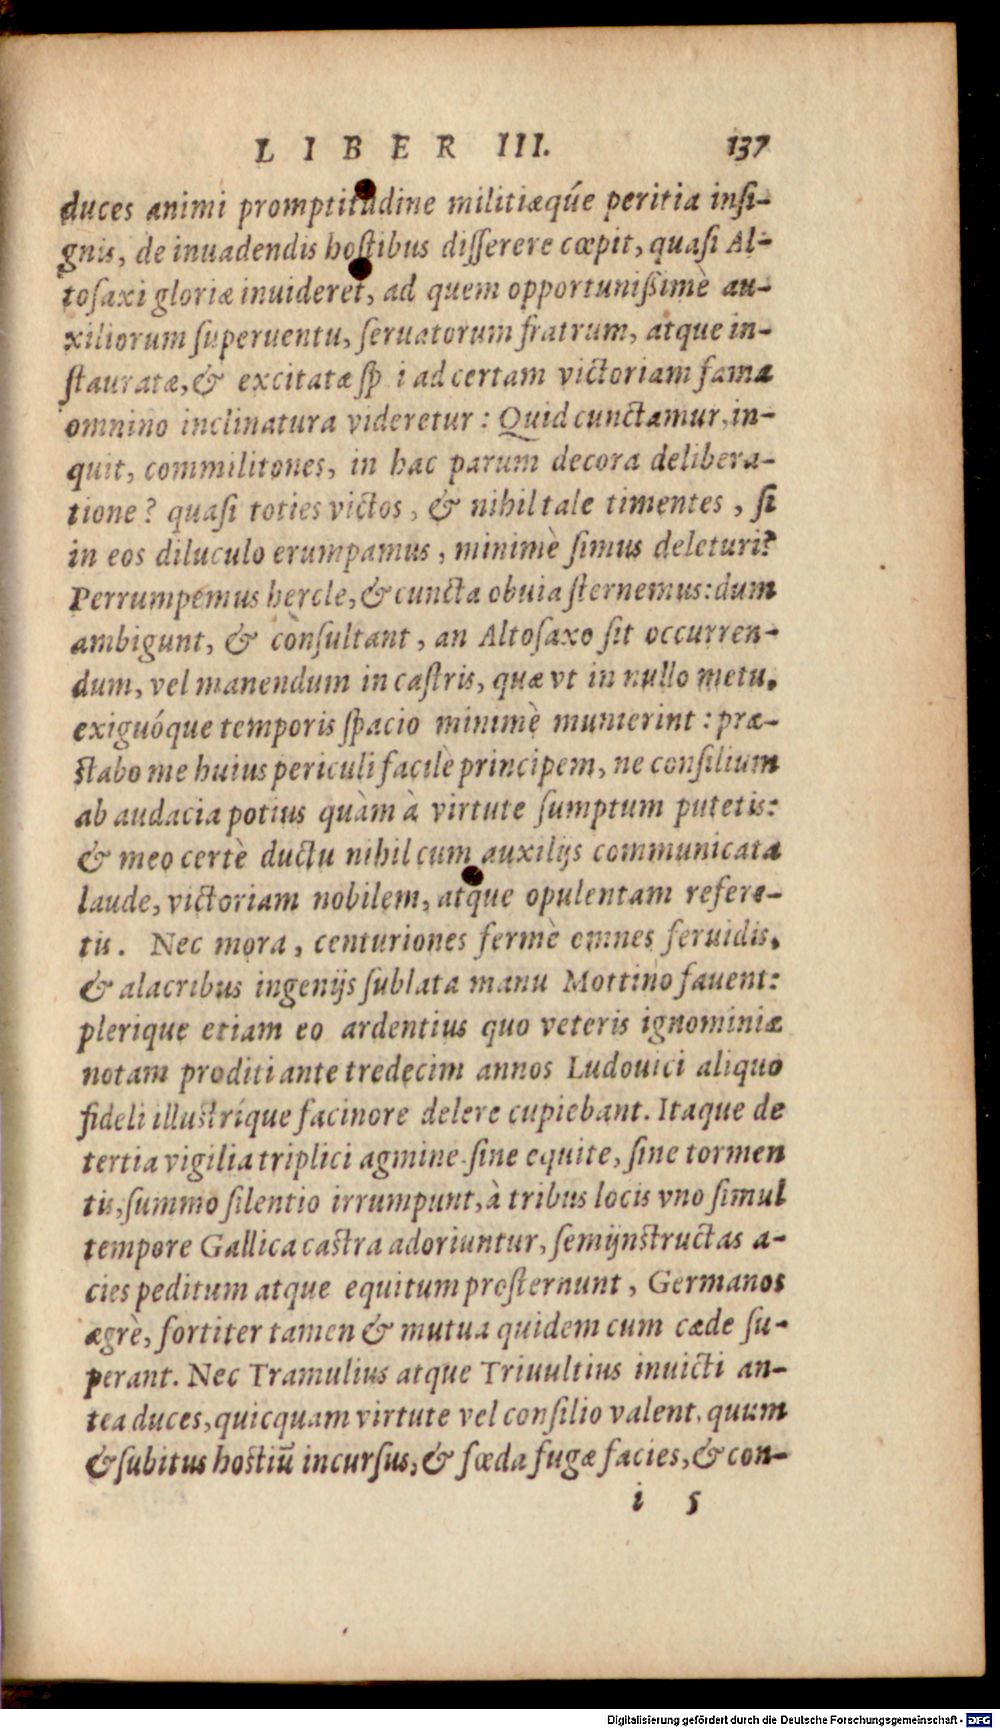 LIBER III. 137
duces animi promptitudine militiæqúe peritia inſi-
gnis, de inuadendis hoſtibus diſſerere cœpit, quaſi Al-
toſaxi gloriæ inuideret, ad quem opportunißimè au-
xiliorum ſuperuentu, ſeruatorum fratrum, atque in-
ſtauratæ, & excitatæ ſp i ad certam victoriam fama
omnino inclinatura videretur: Quid cunctamur, in-
quit, commilitones, in hac parum decora delibera-
tione? quaſi toties victos, & nihil tale timentes, ſi
in eos diluculo erumpamus, minimè ſimus deleturi?
Perrumpemus hercle, & cuncta obuia ſternemus: dum
ambigunt, & conſultant, an Altoſaxo ſit occurren-
dum, vel manendum in caſtris, quæ vt in nullo metu,
exiguóque temporis ſpacio minimè munierint: præ-
ſtabo me huius periculi facilè principem, ne conſilium
ab audacia potius quàm à virtute ſumptum putetis:
& meo certè ductu nihil cum auxilijs communicata
laude, victoriam nobilem, atque opulentam refere-
tis. Nec mora, centuriones fermè omnes feruidis,
& alacribus ingenijs ſublata manu Mottino fauent:
plerique etiam eo ardentius quo veteris ignominiæ
notam proditi ante tredecim annos Ludouici aliquo
fideli illuſtríque facinore delere cupiebant. Itaque de
tertia vigilia triplici agmine ſine equite, ſine tormen
tis, ſummo ſilentio irrumpunt, à tribus locis vno ſimul
tempore Gallica caſtra adoriuntur, ſemijnſtructas a-
cies peditum atque equitum proſternunt, Germanos
ægrè, fortiter tamen & mutua quidem cum cæde ſu-
perant. Nec Tramulius atque Triuultius inuicti an-
tea duces, quicquam virtute vel conſilio valent, quum
& ſubitus hoſtiū incurſus, & fœda fugæ facies, & con-
i 5
Digitalisierung gefördert durch die Deutsche Forschungsgemeinschaft - DFG